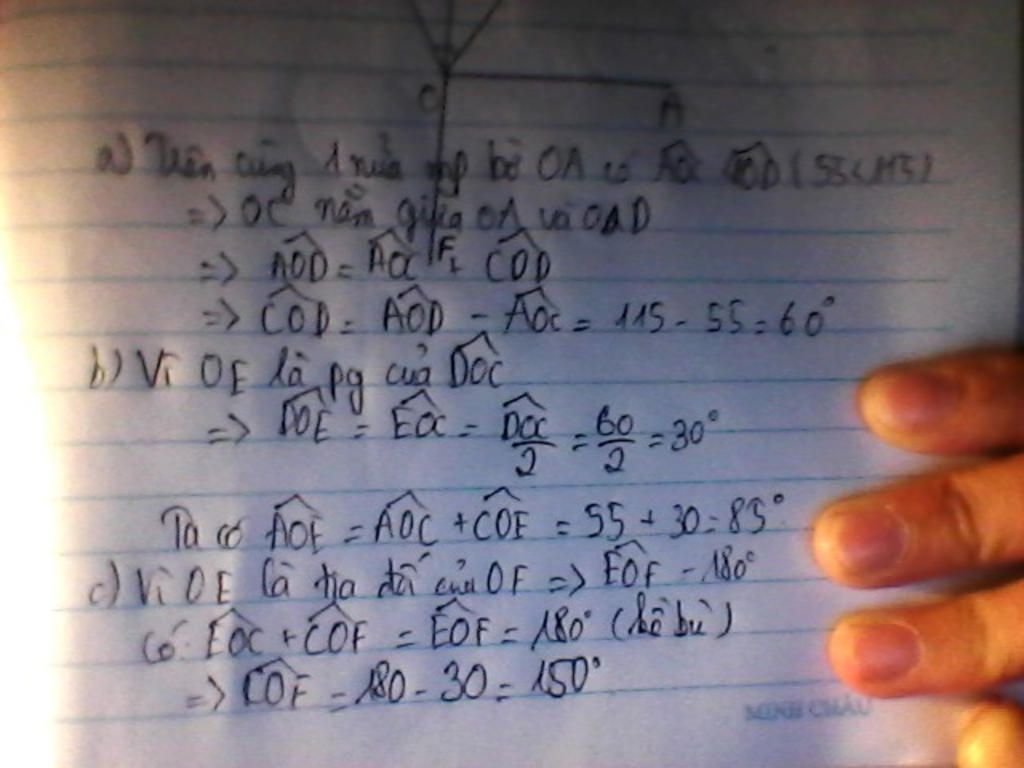 O A
a) Trên cùng 1 nửa mp bờ OA có AÔC < AÔD (55<115)
=> OC nằm giữa OA và OD
=> AÔD = AÔC + CÔD
F
=> CÔD = AÔD - AÔC = 115 - 55 = 60°
b) Vì OE là pg của DÔC
=> DÔE = EÔC = DÔC/2 = 60/2 = 30°
Ta có AÔE = AÔC + CÔE = 55 + 30 = 85°
c) Vì OE là tia đối của OF => EÔF = 180°
Có: EÔC + CÔF = EÔF = 180° (kề bù)
=> CÔF = 180 - 30 = 150°
MINH CHÂU